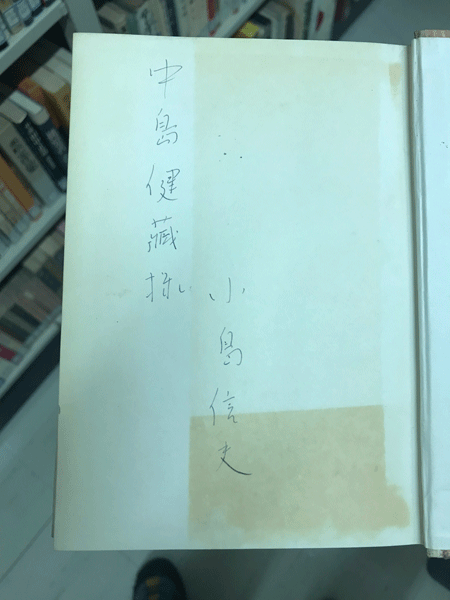 小島信夫
中島健藏様